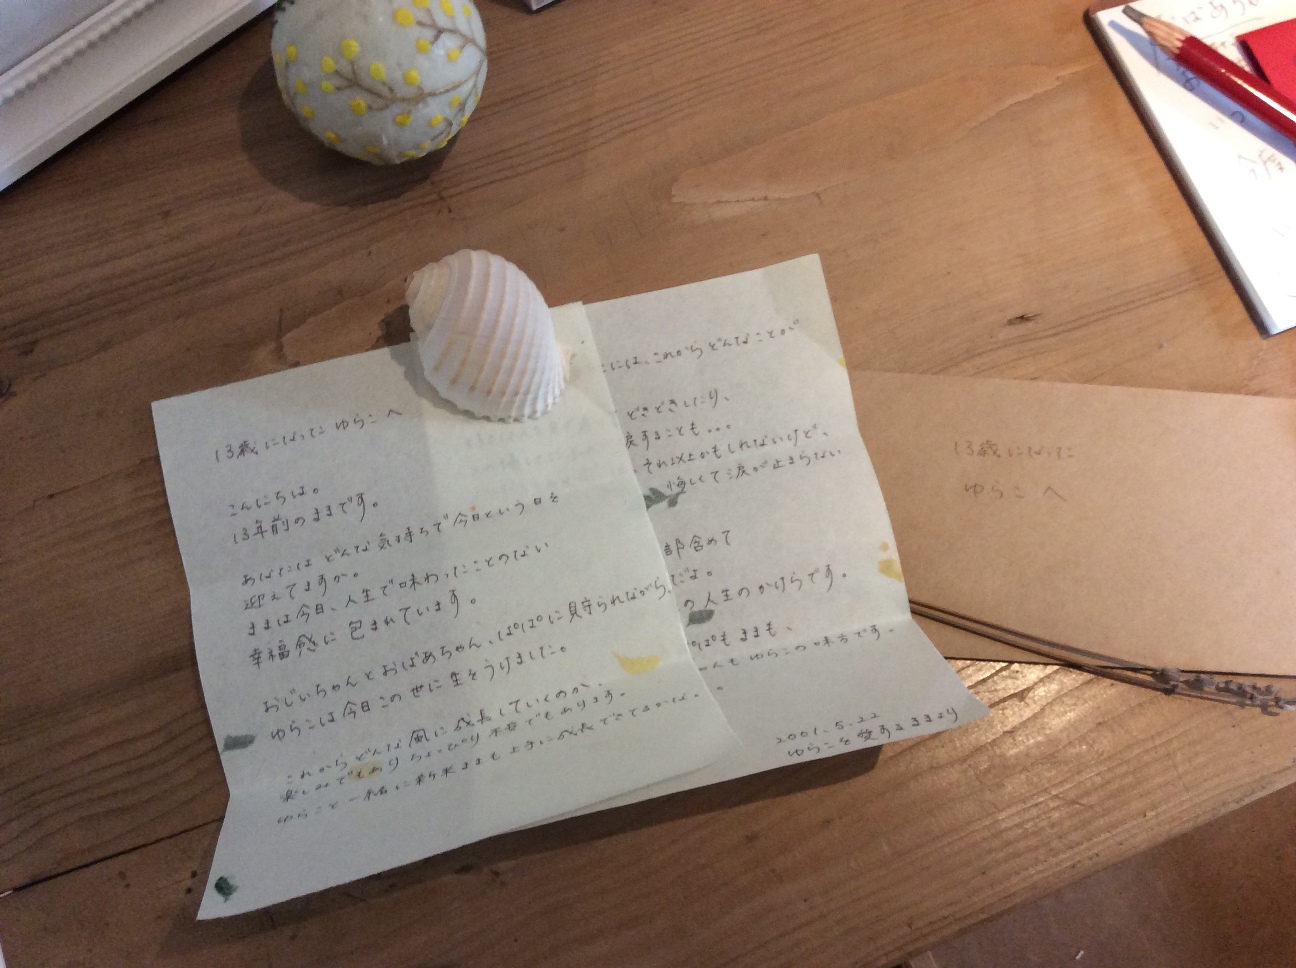 13歳になった ゆらこ へ
こんにちは。
13年前のままです。
あなたは どんな 気持ちで 今日という 日を
迎えてますか。
ままは今日、人生で味わったことのない
幸福感に 包まれています。
おじいちゃんとおばあちゃん、ぱぱに見守られながら、
ゆらこは今日この世に生をうけました。
これから どんな 風に 成長していくのか、
楽しみでもあり ちょっぴり 不安でもあります。
ゆらこと一緒に新米ままも上手に成長できてるかな。
には、これから どんなことが
どきどきしたり、
戻することも...
それ以上かもしれないけど、
悔しくて 涙が止まらない
部含めて
だよ。
の人生のかけらです。
ぱぱも ままも、
も ゆらこの味方です。
2001.5.22
ゆらこを愛するままより
13歳になった
ゆらこ へ